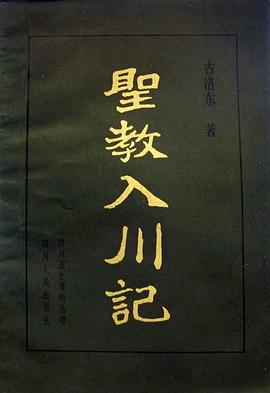 古洛东 著
聖教入川記
四川历史资料丛书
四川人民出版社